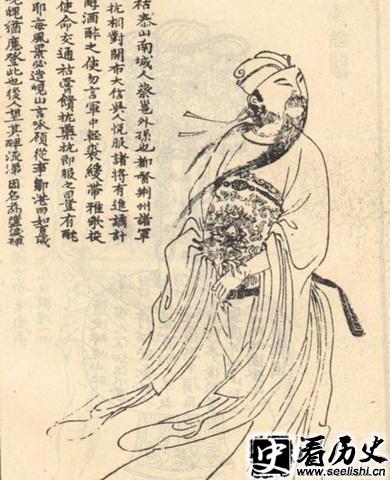 祜泰山南城人蔡邕外孫也都督荊州諸軍
抗相對開布大信吳人悅服諸將有進譎計
醇酒醉之使勿言軍中輕裘緩帶雅歌投
使命交通祜嘗饋抗藥抗即服之曰豈有酖
耶每風景必造峴山言咏顧從事鄒湛曰如
魂魄猶應登此也後人望其碑流涕因名為墮淚碑
史看历史
www.seelishi.cn